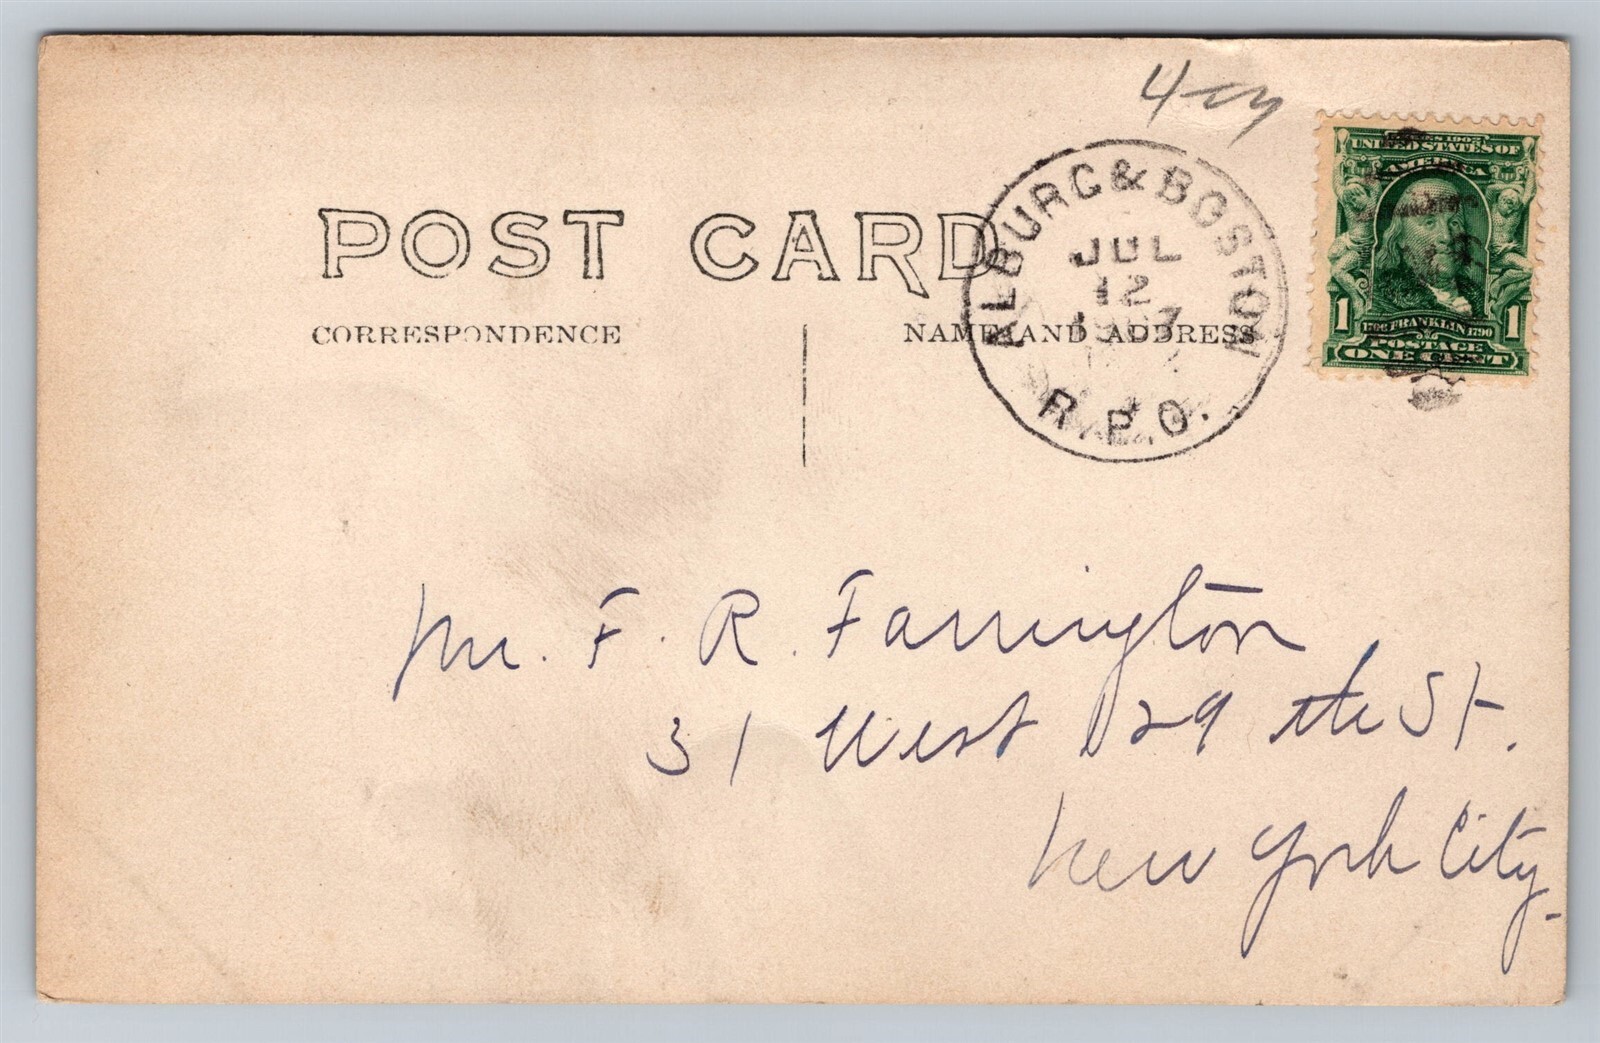 4
ALBURG & BOSTON
JUL
12
1907
R.P.O.
SERIES 1902
UNITED STATES OF
AMERICA
1 1706 FRANKLIN 1790 1
POSTAGE
ONE CENT
POST CARD
CORRESPONDENCE
NAME AND ADDRESS
Mr. F. R. Farrington
31 West 129 the St.
New York City.